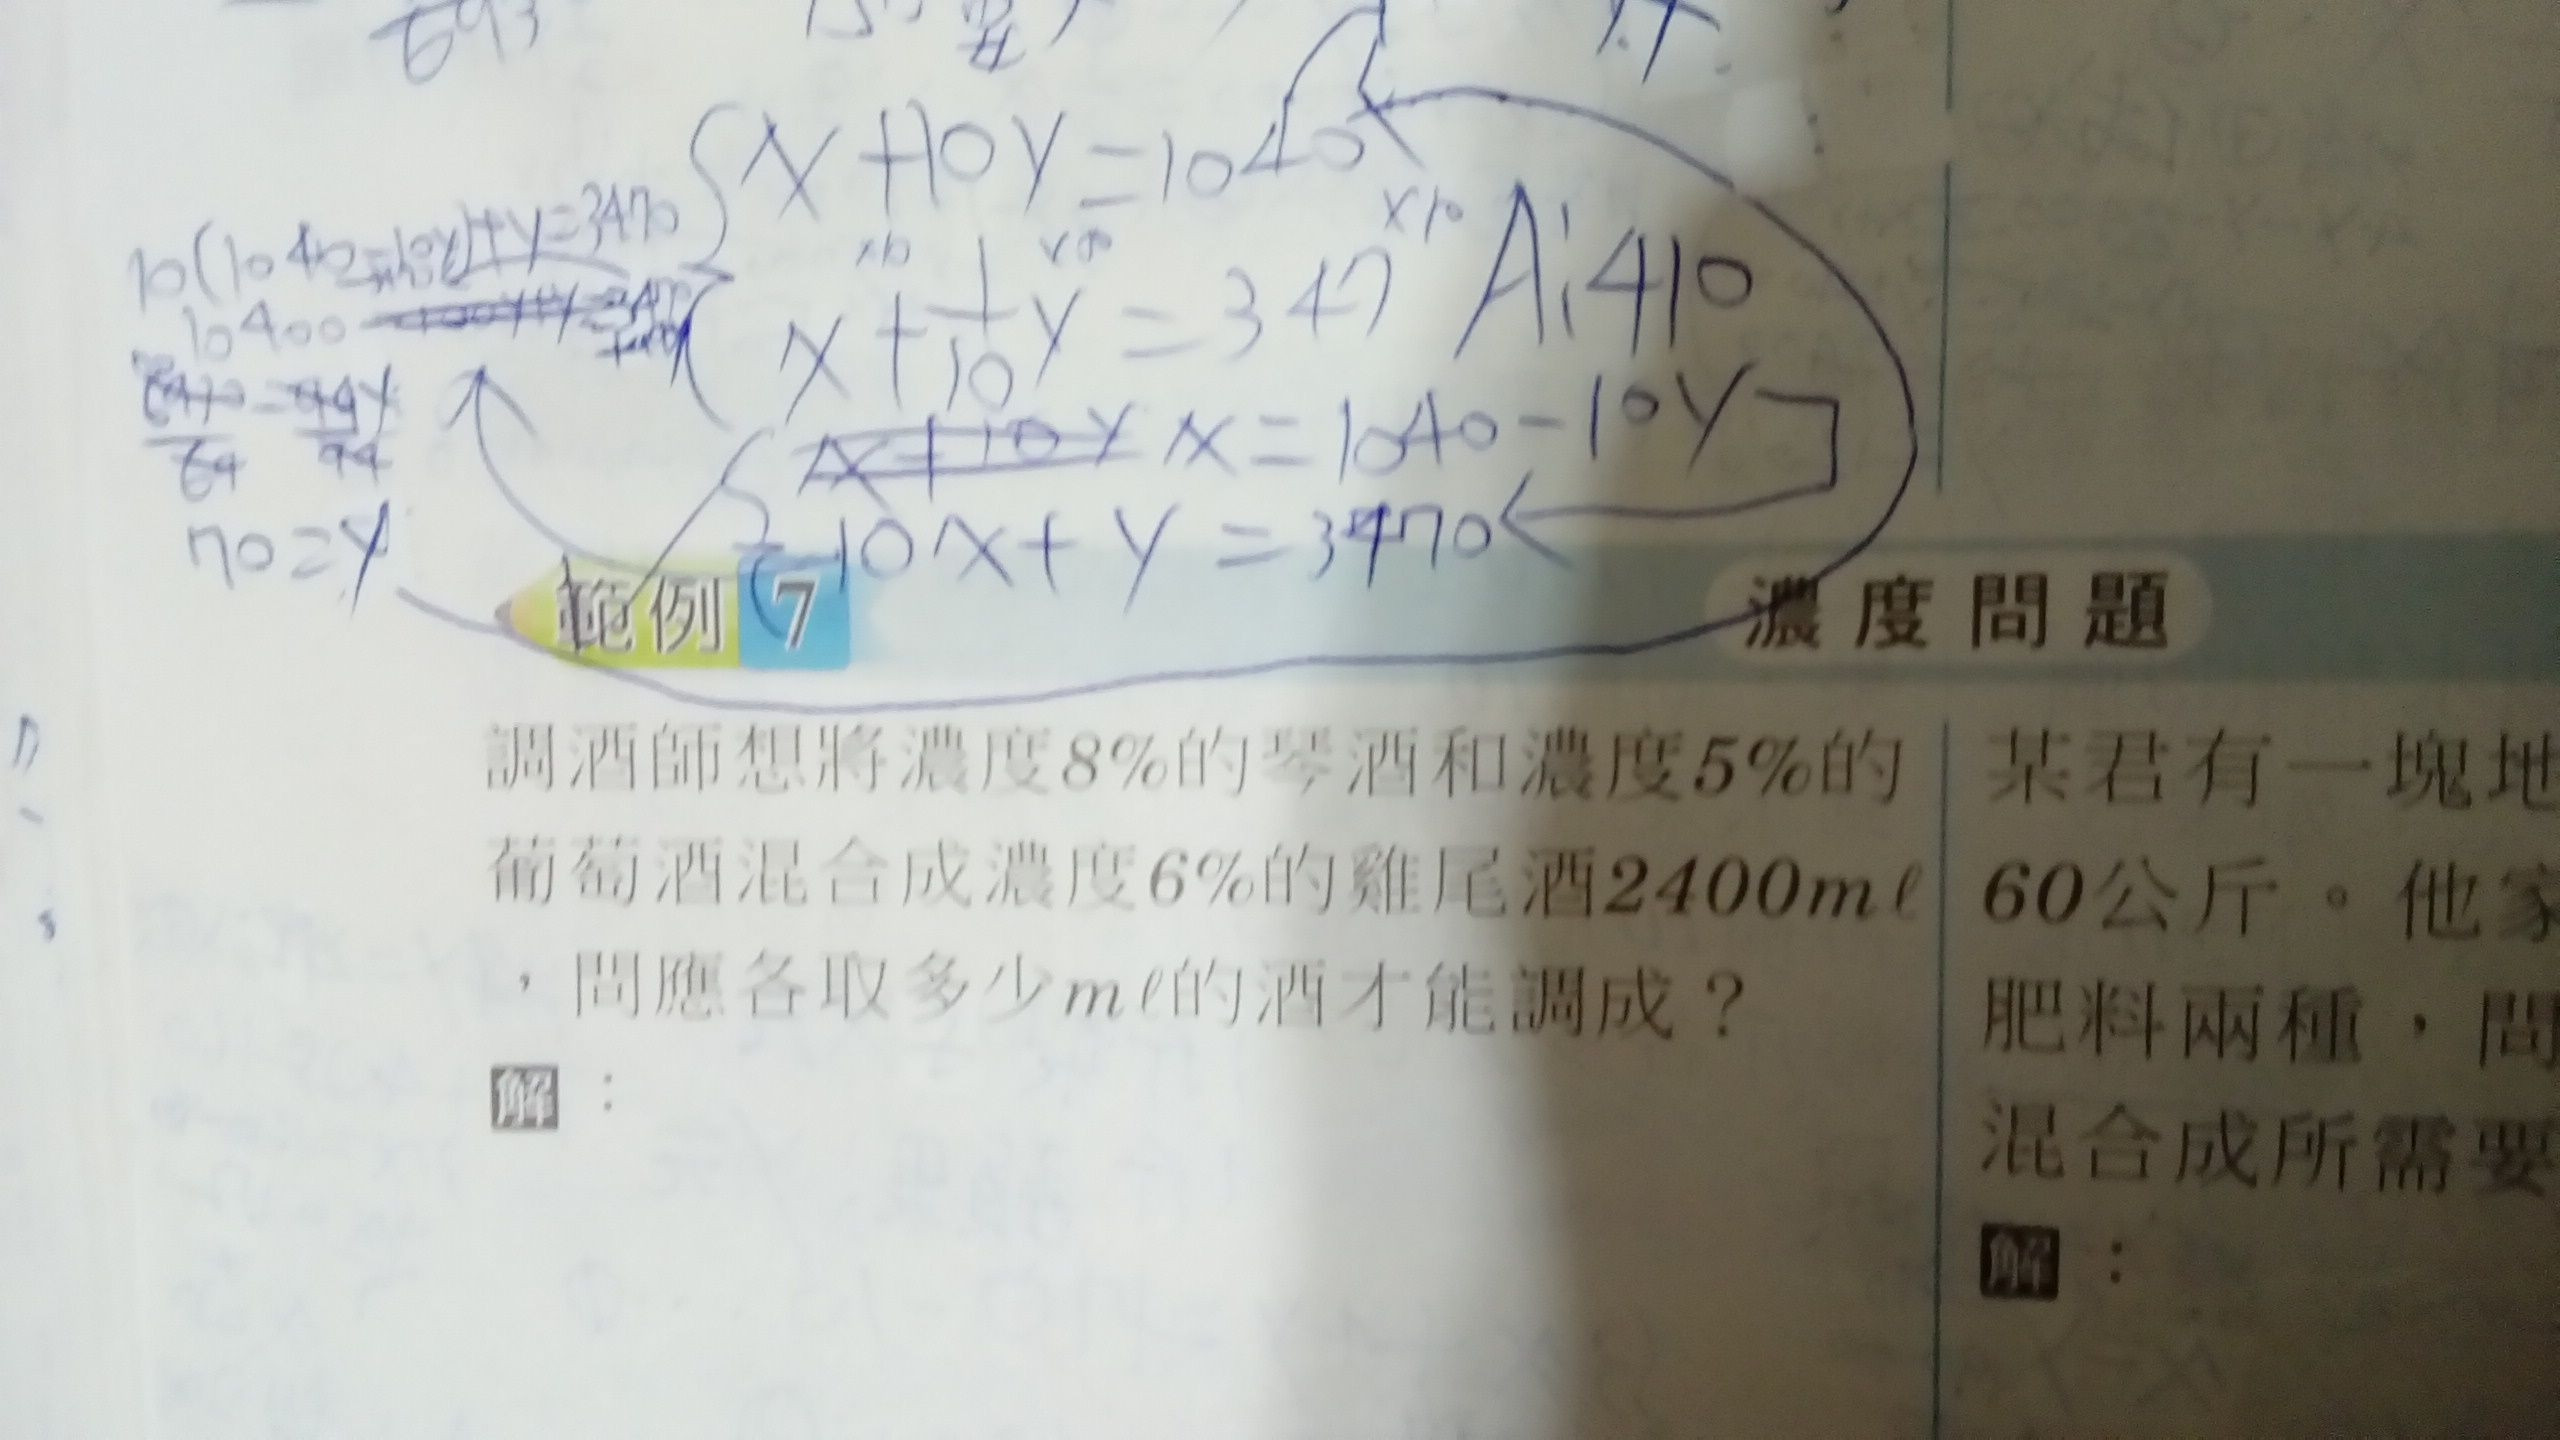 x+10y=1040
x10 x10 x10
x+1/10y=347 A:410
10(1040-10y)+y=3470
10400
x=1040-10y
10x+y=3470
70=y
範例 7 濃度問題
調酒師想將濃度8%的琴酒和濃度5%的
葡萄酒混合成濃度6%的雞尾酒2400mℓ
，問應各取多少mℓ的酒才能調成？
解：
某君有一塊地
60公斤。他家
肥料兩種，問
混合成所需要
解：